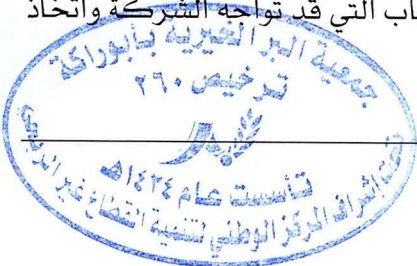 اب التي قد تواجه الشركة واتخاذ
جمعية البر الخيرية بأبوراكة
ترخيص ٢٦٠
تأسست عام ١٤٢٤هـ
تحت إشراف المركز الوطني لتنمية القطاع غير الربحي